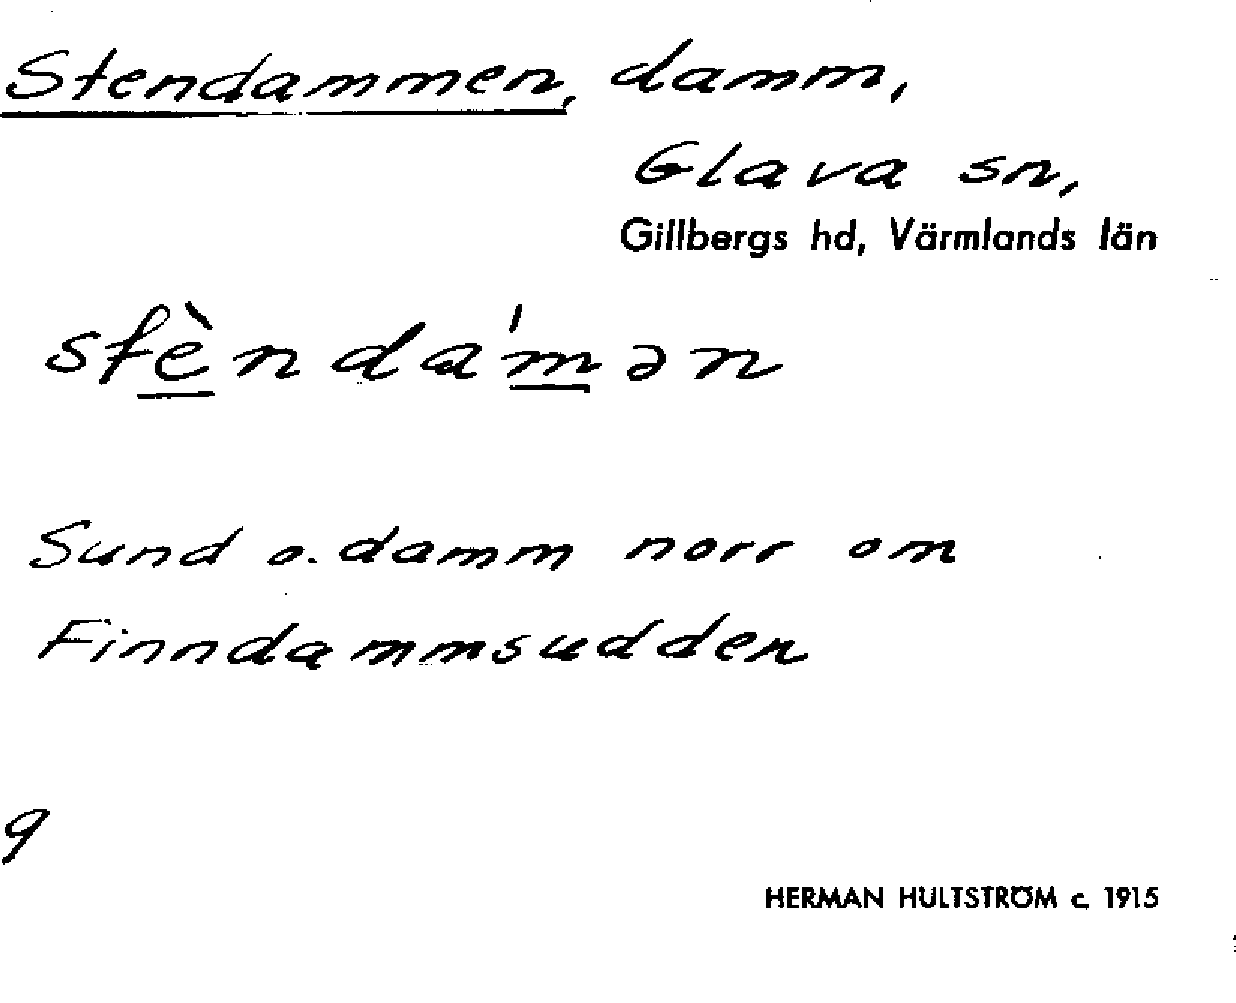 Stendammen, damm,
Glava sn,
Gillbergs hd, Värmlands län
stèndam̍ən
Sund o. damm norr om
Finndammsudden
9
HERMAN HULTSTRÖM c. 1915